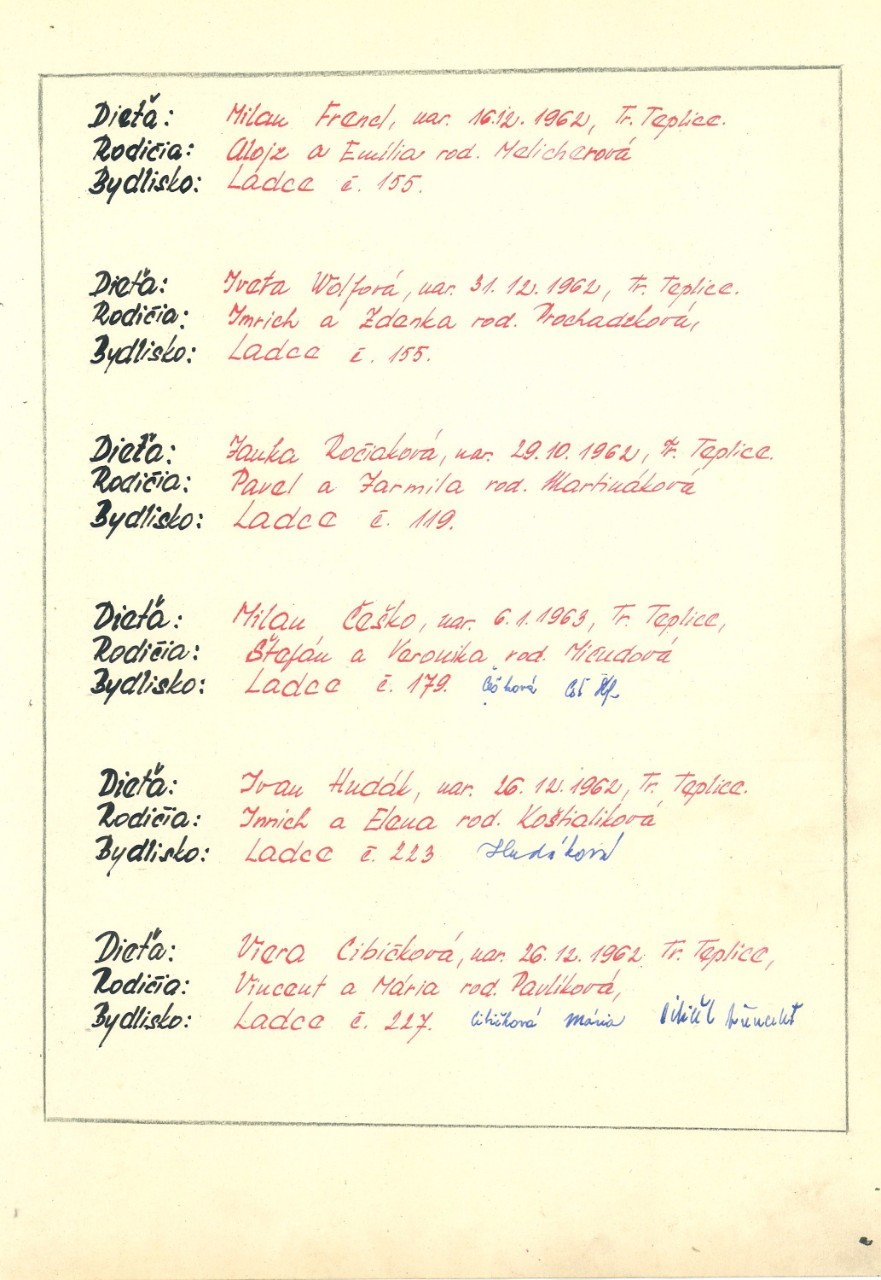 Dieťa: Milan Frenel, nar. 16.12. 1962, Tr. Teplice.
Rodičia: Alojz a Emília rod. Melicherová
Bydlisko: Ladce č. 155.
Dieťa: Iveta Wolfová, nar. 31. 12. 1962, Tr. Teplice.
Rodičia: Imrich a Zdenka rod. Prochadzková,
Bydlisko: Ladce č. 155.
Dieťa: Janka Ročiaková, nar. 29. 10. 1962, Tr. Teplice.
Rodičia: Pavel a Jarmila rod. Martináková
Bydlisko: Ladce č. 119.
Dieťa: Milan Češko, nar. 6. 1. 1963, Tr. Teplice,
Rodičia: Štefán a Veronika rod. Micudová
Bydlisko: Ladce č. 179. Češková
Dieťa: Ivan Hudák, nar. 26. 12. 1962, Tr. Teplice.
Rodičia: Imrich a Elena rod. Koštialiková
Bydlisko: Ladce č. 223 Hudáková
Dieťa: Viera Cibičková, nar. 26. 12. 1962, Tr. Teplice,
Rodičia: Vincent a Mária rod. Pavlíková,
Bydlisko: Ladce č. 227. Cibičková Mária